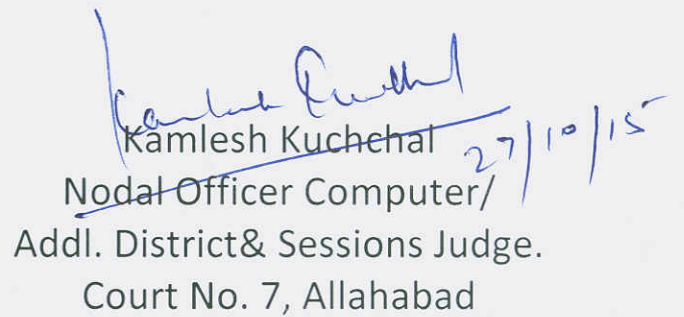 Kamlesh Kuchchal
Kamlesh Kuchchal
27/10/15
Nodal Officer Computer/
Addl. District& Sessions Judge.
Court No. 7, Allahabad